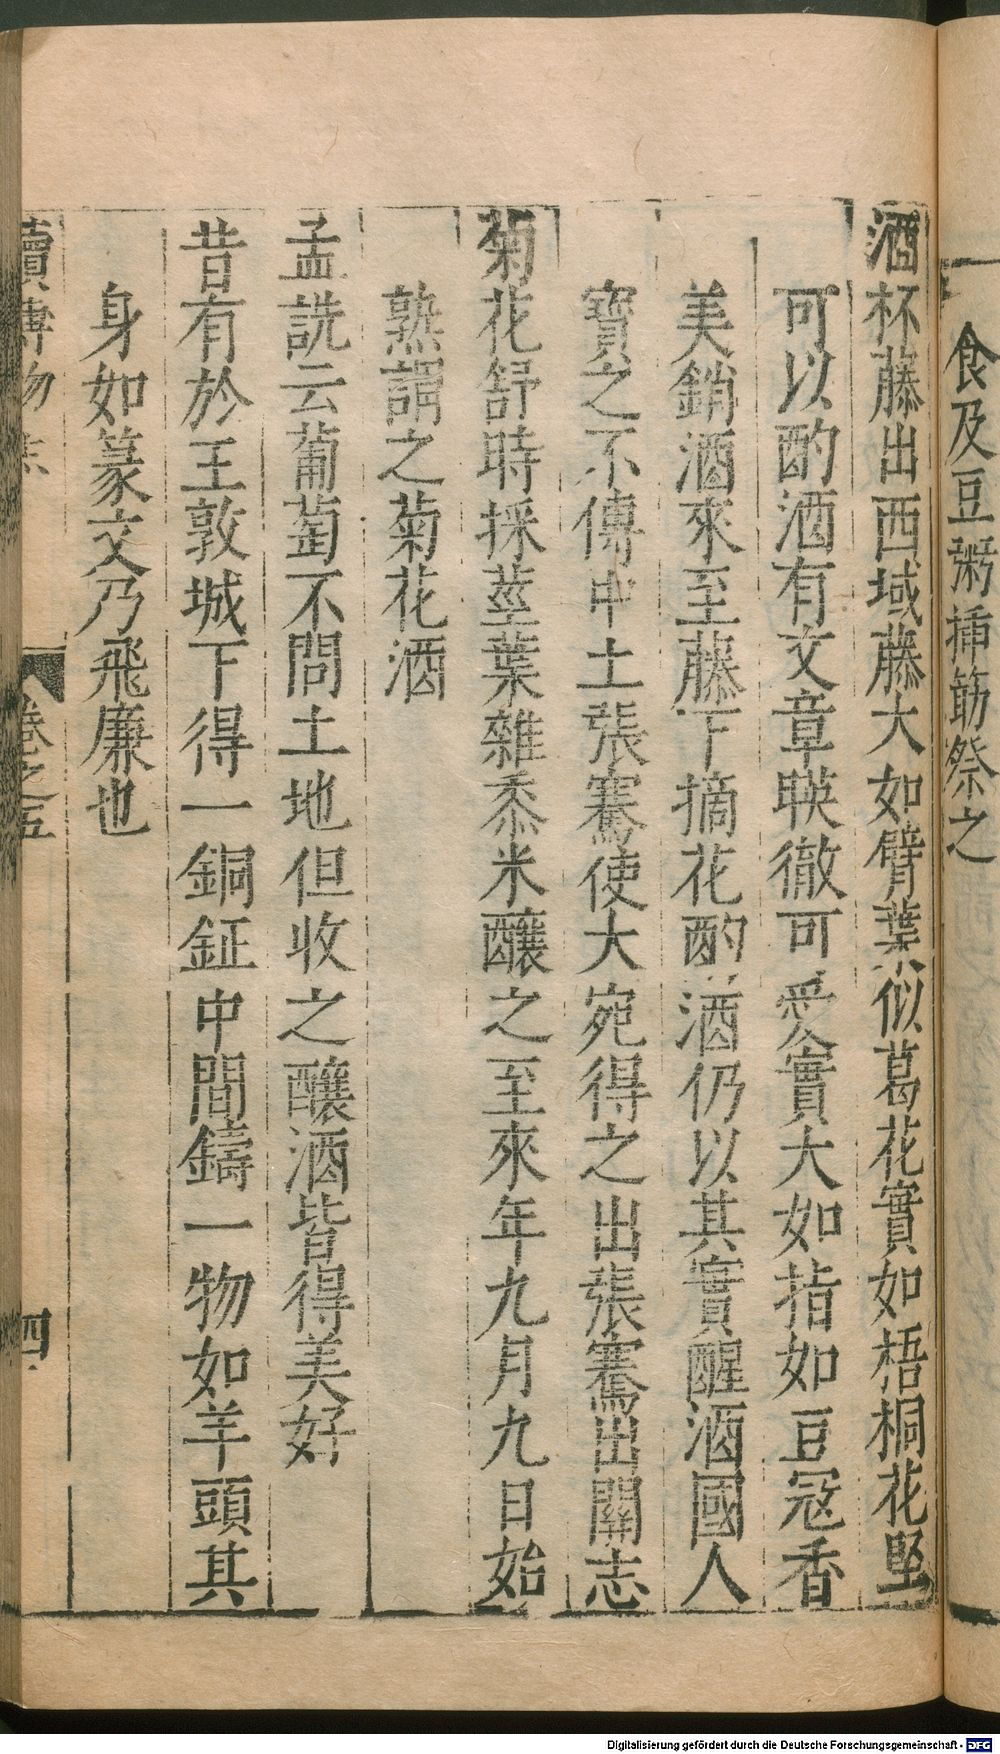 食及豆粥揷筯祭之
酒杯藤出西域藤大如臂葉似葛花實如梧桐花堅
可以酌酒有文章暎徹可愛實大如指如豆冦香
美銷酒來至藤下摘花酌酒仍以其實醒酒國人
寶之不傳中土張騫使大宛得之出張騫出關志
菊花舒時採莖葉雜黍米釀之至來年九月九日始
熟謂之菊花酒
孟詵云葡萄不問土地但收之釀酒皆得美好
昔有於王敦城下得一銅鉦中間鑄一物如羊頭其
身如篆文乃飛廉也
續博物志 卷之五 四
Digitalisierung gefördert durch die Deutsche Forschungsgemeinschaft - DFG